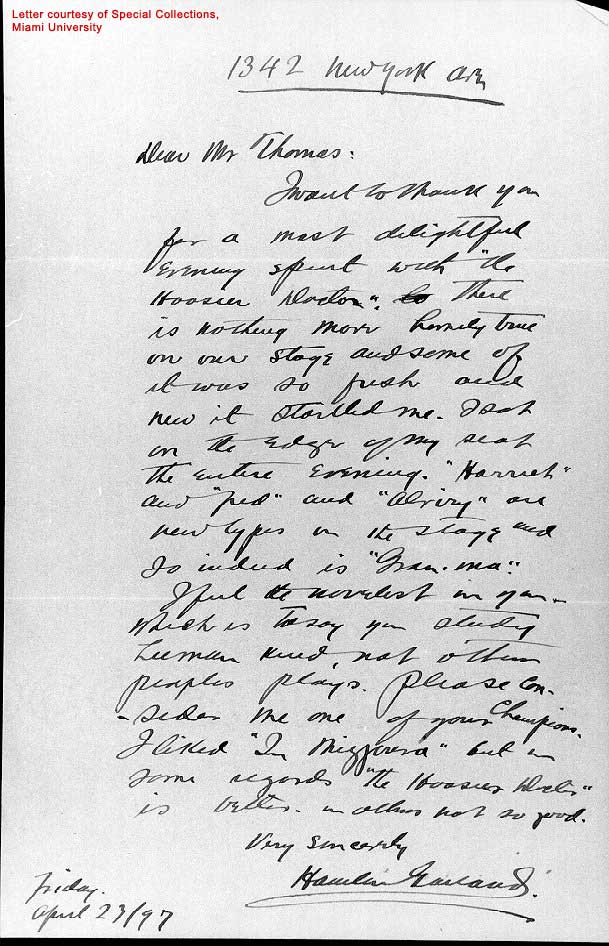 Letter courtesy of Special Collections,
Miami University
1342 New York Ave
Dear Mr Thomas:
I want to thank you
for a most delightful
Evening spent with "the
Hoosier Doctor". There
is nothing more homely true
on our stage and some of
it was so fresh and
new it startled me. I sat
on the Edge of my seat
the entire Evening. "Harriet"
and "Fred" and "Alviry" are
new types on the stage and
so indeed is "Gran-ma".
I feel the novelist in you -
which is to say you study
human kind, not other
peoples plays. Please con-
-sider me one of your Champions.
I liked "In Mizzoura" but in
some regards "the Hoosier Doctor"
is better - in others not so good.
Very Sincerely
Hamlin Garland.
Friday.
April 23/97